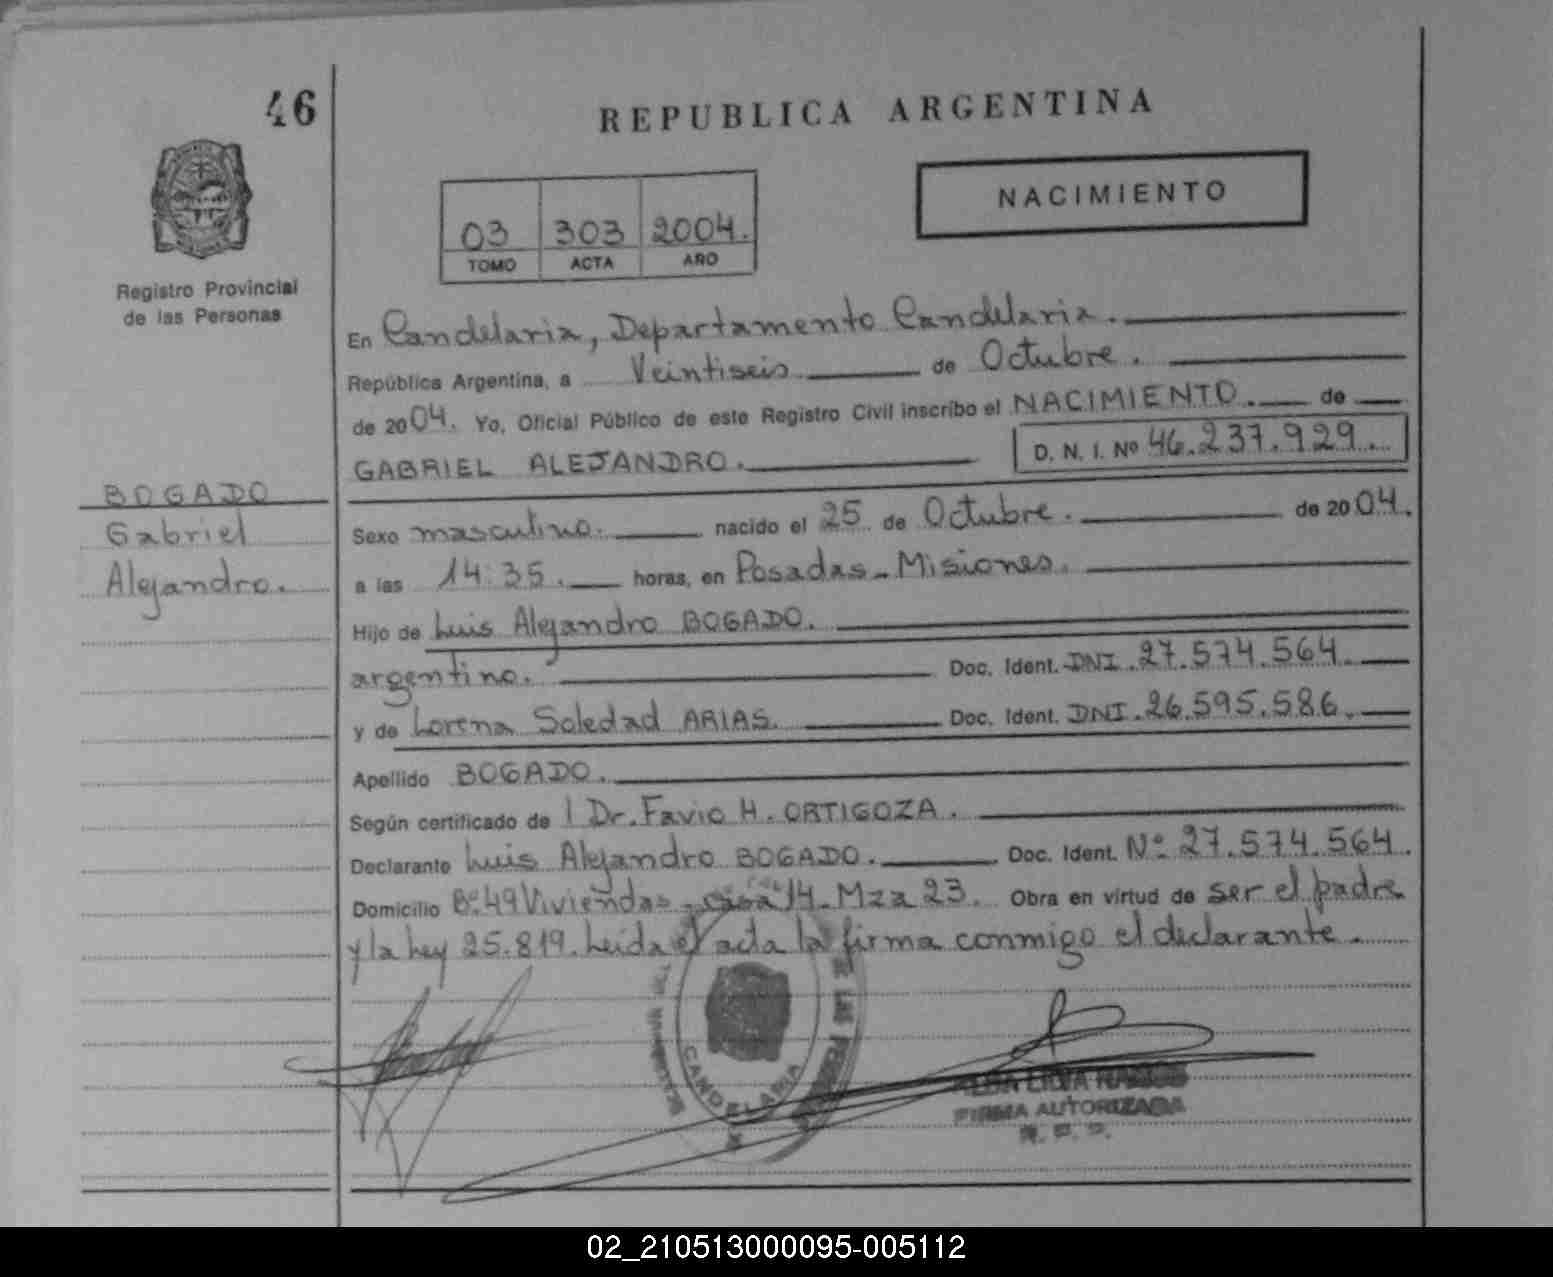 46
REPUBLICA ARGENTINA
NACIMIENTO
03 303 2004.
TOMO ACTA AÑO
Registro Provincial
de las Personas
En Candelaria, Departamento Candelaria.
República Argentina, a Veintiseis de Octubre.
de 2004. Yo, Oficial Público de este Registro Civil inscribo el NACIMIENTO. de
GABRIEL ALEJANDRO. D. N. I. Nº 46.237.929.
BOGADO
Gabriel
Alejandro.
Sexo masculino. nacido el 25 de Octubre. de 2004.
a las 14:35. horas, en Posadas-Misiones.
Hijo de Luis Alejandro BOGADO.
argentino. Doc. Ident. DNI.27.574.564.
y de Lorena Soledad ARIAS. Doc. Ident. DNI.26.595.586.
Apellido BOGADO.
Según certificado de l Dr. Favio H. ORTIGOZA.
Declarante Luis Alejandro BOGADO. Doc. Ident. Nº 27.574.564.
Domicilio Bº 49 Viviendas - casa 14. Mza 23. Obra en virtud de ser el padre
y la Ley 25.819. Leida el acta la firma conmigo el declarante.
DE LAS
CANDELARIA
FIRMA AUTORIZADA
R. P. P.
02_210513000095-005112